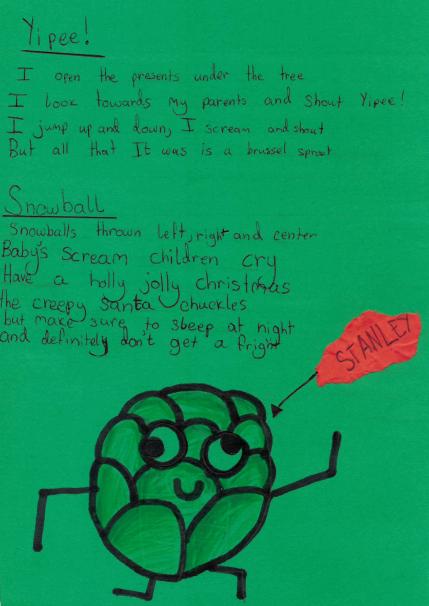 Yipee!
I open the presents under the tree
I look towards My parents and Shout Yipee!
I jump up and down, I scream and shout
But all that It was is a brussel sprout
Snowball
Snowballs thrown left, right and center
Baby's Scream children cry
Have a holly jolly christmas
the creepy Santa chuckles
but make sure to sleep at night
and definitely don't get a fright
STANLEY